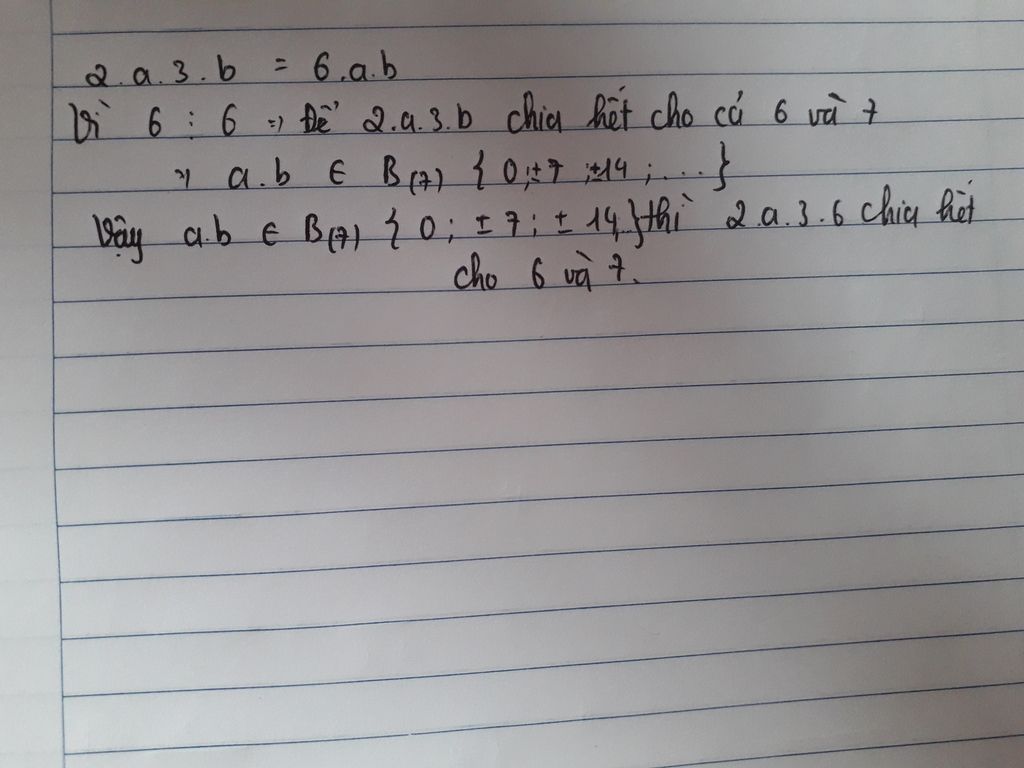 2.a.3.b = 6.a.b
Vì 6 ⋮ 6 => Để 2.a.3.b chia hết cho cả 6 và 7
=> a.b ∈ B(7) { 0;±7 ;±14 ; ... }
Vậy a.b ∈ B(7) { 0 ; ± 7 ; ± 14;} thì 2.a.3.6 chia hết
cho 6 và 7.